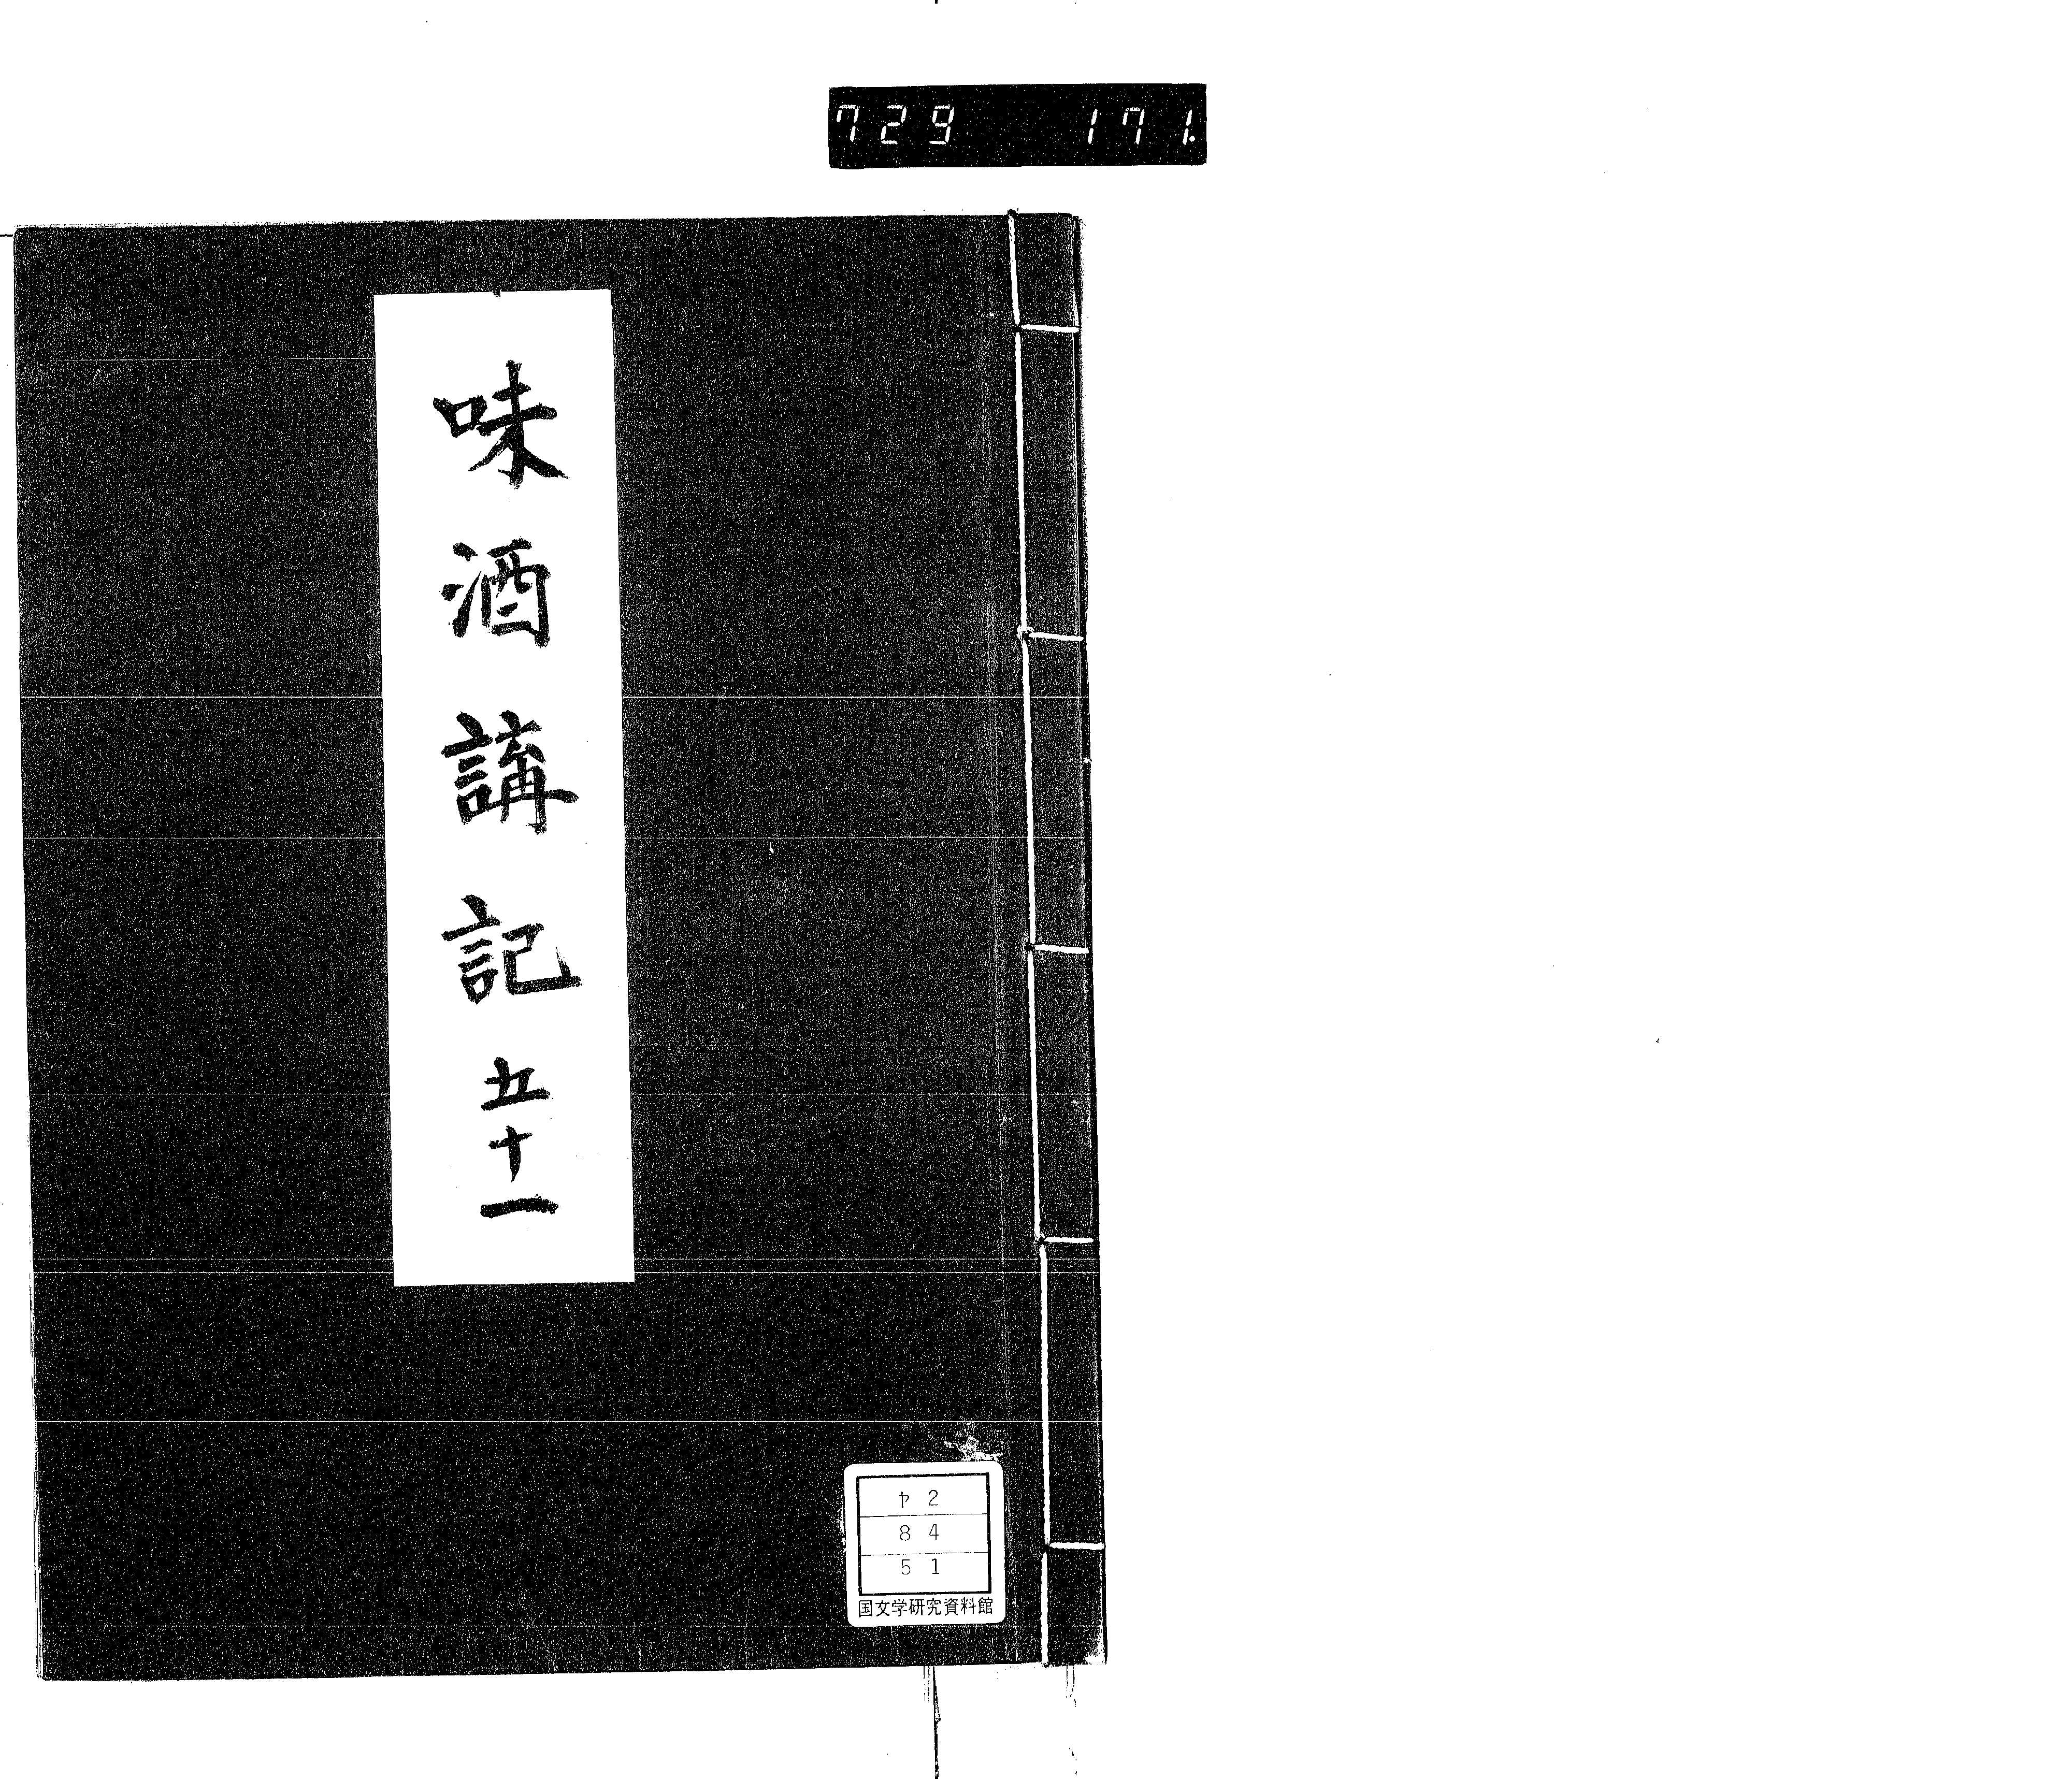 729 171.
味酒講記 五十一
ヤ2
84
51
国文学研究資料館